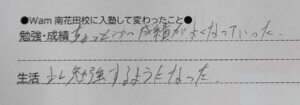 ●Wam 南花田校に入塾して変わったこと●
勉強・成績 ちょっとずつ成績がよくなっていった.
生活 よし勉強するようになった.